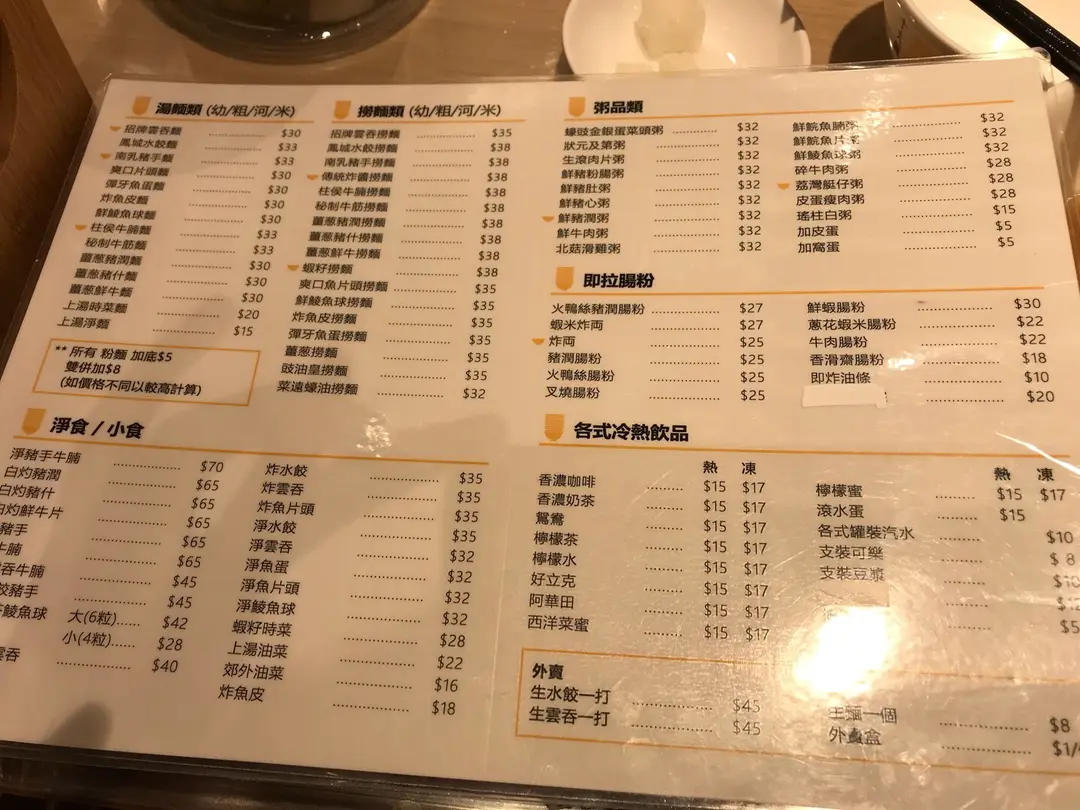 湯麵類 (幼/粗/河/米)
招牌雲吞麵 $30
鳳城水餃麵 $33
南乳豬手麵 $33
爽口片頭麵 $30
彈牙魚蛋麵 $30
炸魚皮麵 $30
鮮鯪魚球麵 $30
柱侯牛腩麵 $33
秘制牛筋麵 $33
薑葱豬潤麵 $30
薑葱豬什麵 $30
薑葱鮮牛麵 $30
上湯時菜麵 $20
上湯淨麵 $15
** 所有 粉麵 加底$5
雙併加$8
(如價格不同以較高計算)
撈麵類 (幼/粗/河/米)
招牌雲吞撈麵 $35
鳳城水餃撈麵 $38
南乳豬手撈麵 $38
傳統炸醬撈麵 $38
柱侯牛腩撈麵 $38
秘制牛筋撈麵 $38
薑葱豬潤撈麵 $38
薑葱豬什撈麵 $38
薑葱鮮牛撈麵 $38
蝦籽撈麵 $38
爽口魚片頭撈麵 $35
鮮鯪魚球撈麵 $35
炸魚皮撈麵 $35
彈牙魚蛋撈麵 $35
薑葱撈麵 $35
豉油皇撈麵 $35
菜遠蠔油撈麵 $32
粥品類
蠔豉金銀蛋菜頭粥 $32
狀元及第粥 $32
生滾肉片粥 $32
鮮豬粉腸粥 $32
鮮豬肚粥 $32
鮮豬心粥 $32
鮮豬潤粥 $32
鮮牛肉粥 $32
北菇滑雞粥 $32
鮮鯇魚腩粥 $32
鮮鯇魚片粥 $32
鮮鯪魚球粥 $32
碎牛肉粥 $28
荔灣艇仔粥 $28
皮蛋瘦肉粥 $28
瑤柱白粥 $15
加皮蛋 $5
加窩蛋 $5
即拉腸粉
火鴨絲豬潤腸粉 $27
蝦米炸両 $27
炸両 $25
豬潤腸粉 $25
火鴨絲腸粉 $25
叉燒腸粉 $25
鮮蝦腸粉 $30
蔥花蝦米腸粉 $22
牛肉腸粉 $22
香滑齋腸粉 $18
即炸油條 $10
$20
淨食 / 小食
淨豬手牛腩 $70
白灼豬潤 $65
白灼豬什 $65
白灼鮮牛片 $65
豬手 $65
牛腩 $65
吞牛腩 $45
餃豬手 $45
鯪魚球 大(6粒) $42
小(4粒) $28
雲吞 $40
炸水餃 $35
炸雲吞 $35
炸魚片頭 $35
淨水餃 $35
淨雲吞 $32
淨魚蛋 $32
淨魚片頭 $32
淨鯪魚球 $32
蝦籽時菜 $28
上湯油菜 $22
郊外油菜 $16
炸魚皮 $18
各式冷熱飲品
熱 凍
香濃咖啡 $15 $17
香濃奶茶 $15 $17
鴛鴦 $15 $17
檸檬茶 $15 $17
檸檬水 $15 $17
好立克 $15 $17
阿華田 $15 $17
西洋菜蜜 $15 $17
熱 凍
檸檬蜜 $15 $17
滾水蛋 $15
各式罐裝汽水 $10
支裝可樂 $ 8
支裝豆漿 $10
$5
外賣
生水餃一打 $45
生雲吞一打 $45
生麵一個 $8
外賣盒